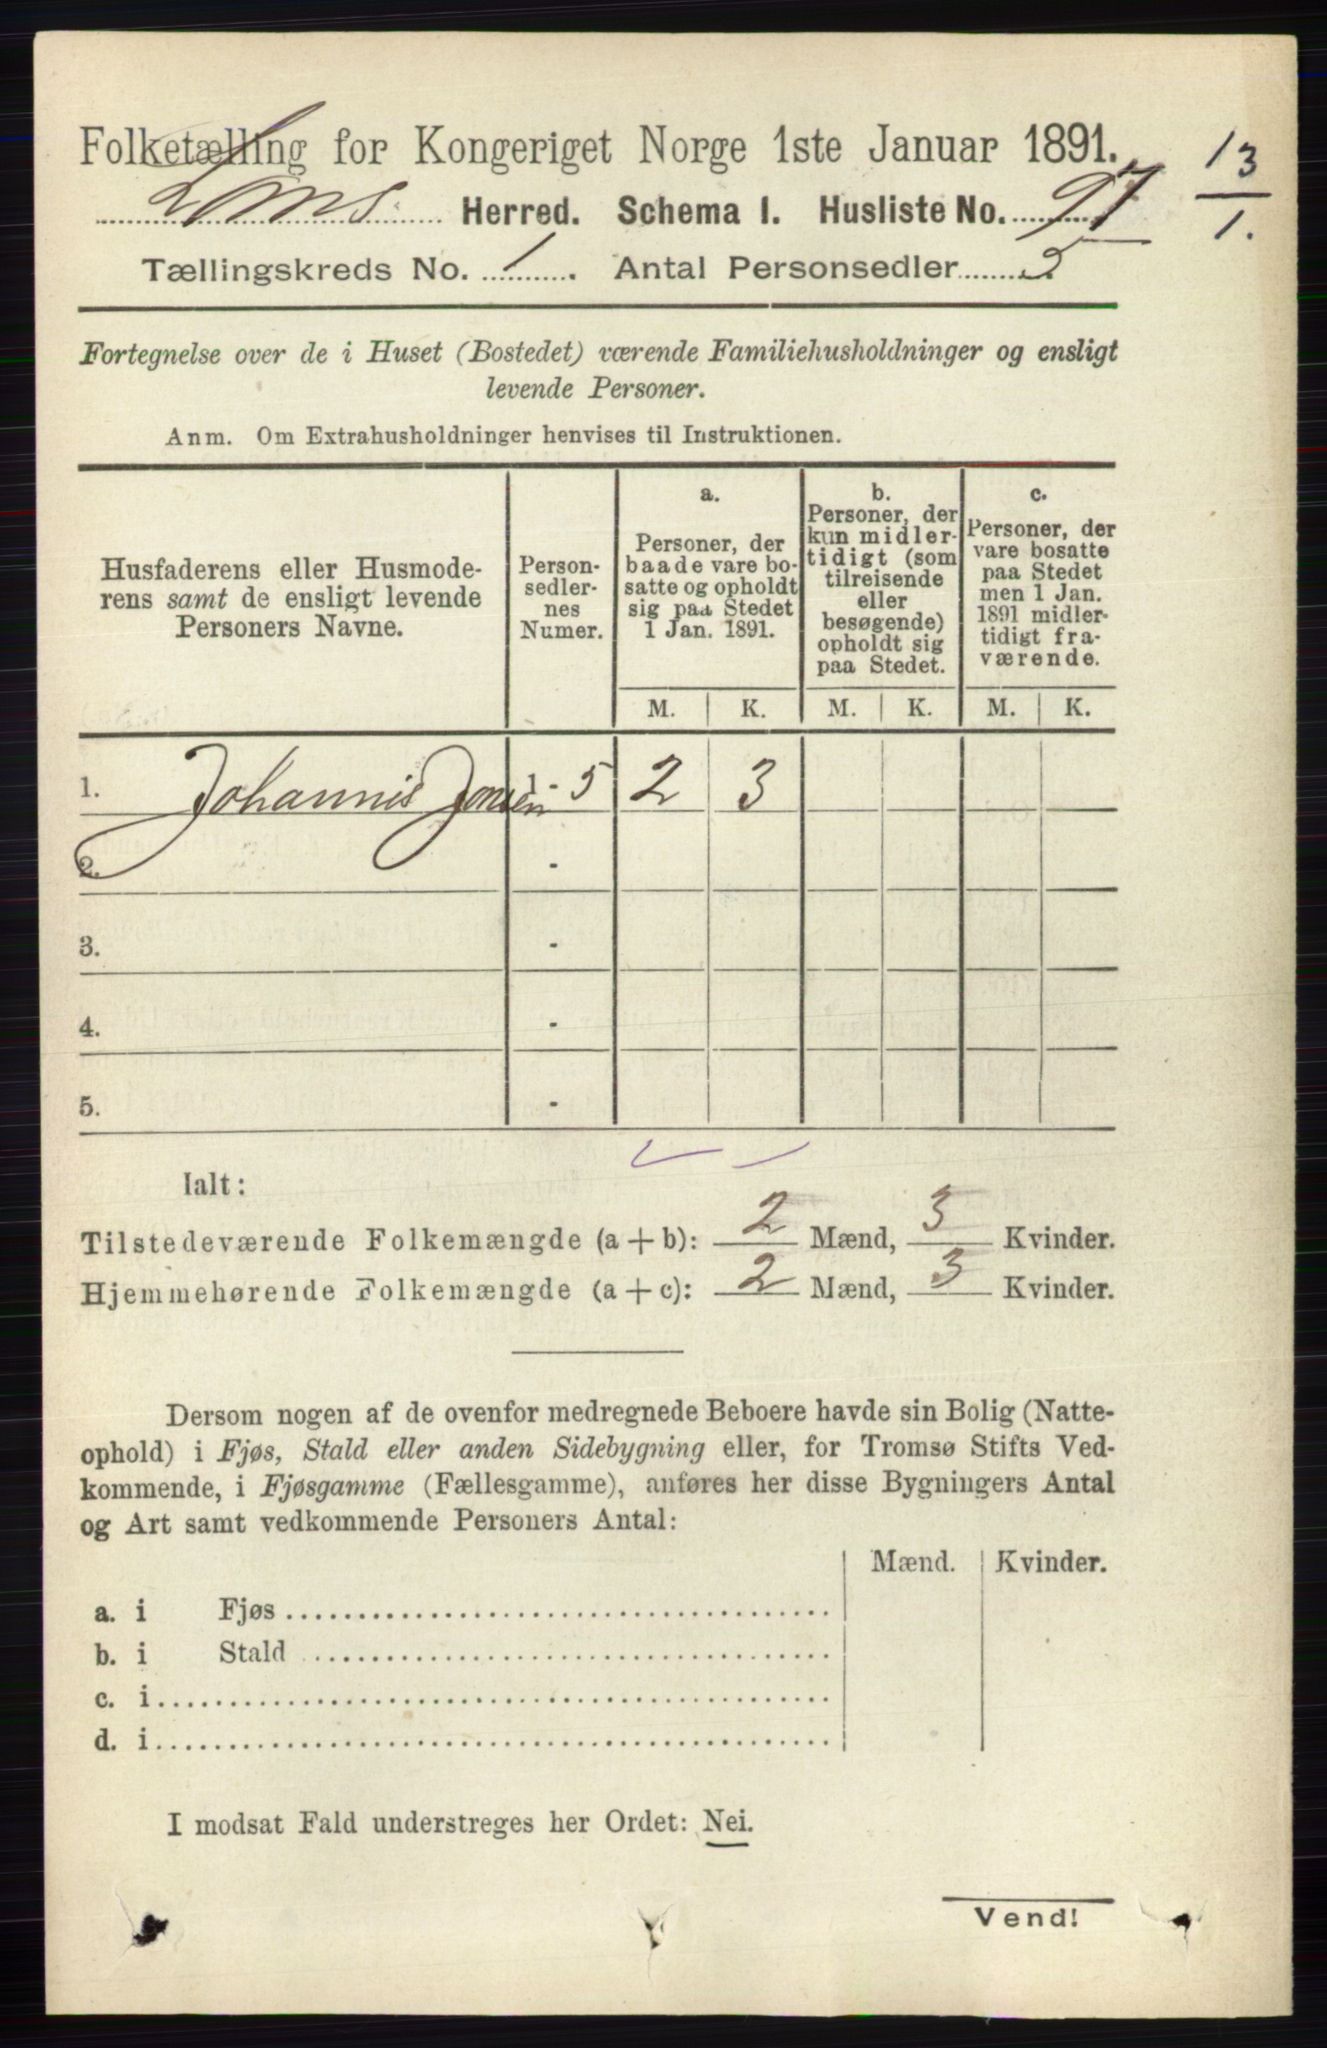 Folketælling for Kongeriget Norge 1ste Januar 1891.
Herred. Schema I. Husliste No. 97
13
1.
Tællingskreds No. 1. Antal Personsedler 5
Fortegnelse over de i Huset (Bostedet) værende Familiehusholdninger og ensligt
levende Personer.
Anm. Om Extrahusholdninger henvises til Instruktionen.
Husfaderens eller Husmode-
rens samt de ensligt levende
Personers Navne.
Person-
sedler-
nes
Numer.
a.
Personer, der
baade vare bo-
satte og opholdt
sig paa Stedet
1 Jan. 1891.
b.
Personer, der
kun midler-
tidigt (som
tilreisende
eller
besøgende)
opholdt sig
paa Stedet.
c.
Personer, der
vare bosatte
paa Stedet
men 1 Jan.
1891 midler-
tidigt fra-
værende.
M. K. M. K. M. K.
1. Johannis Jonsen 1 - 5 2 3
2. -
3. -
4. -
5. -
Ialt:
Tilstedeværende Folkemængde (a + b): 2 Mænd, 3 Kvinder.
Hjemmehørende Folkemængde (a + c): 2 Mænd, 3 Kvinder.
Dersom nogen af de ovenfor medregnede Beboere havde sin Bolig (Natte-
ophold) i Fjøs, Stald eller anden Sidebygning eller, for Tromsø Stifts Ved-
kommende, i Fjøsgamme (Fællesgamme), anføres her disse Bygningers Antal
og Art samt vedkommende Personers Antal:
Mænd. Kvinder.
a. i Fjøs
b. i Stald
c. i
d. i
I modsat Fald understreges her Ordet: Nei.
Vend!